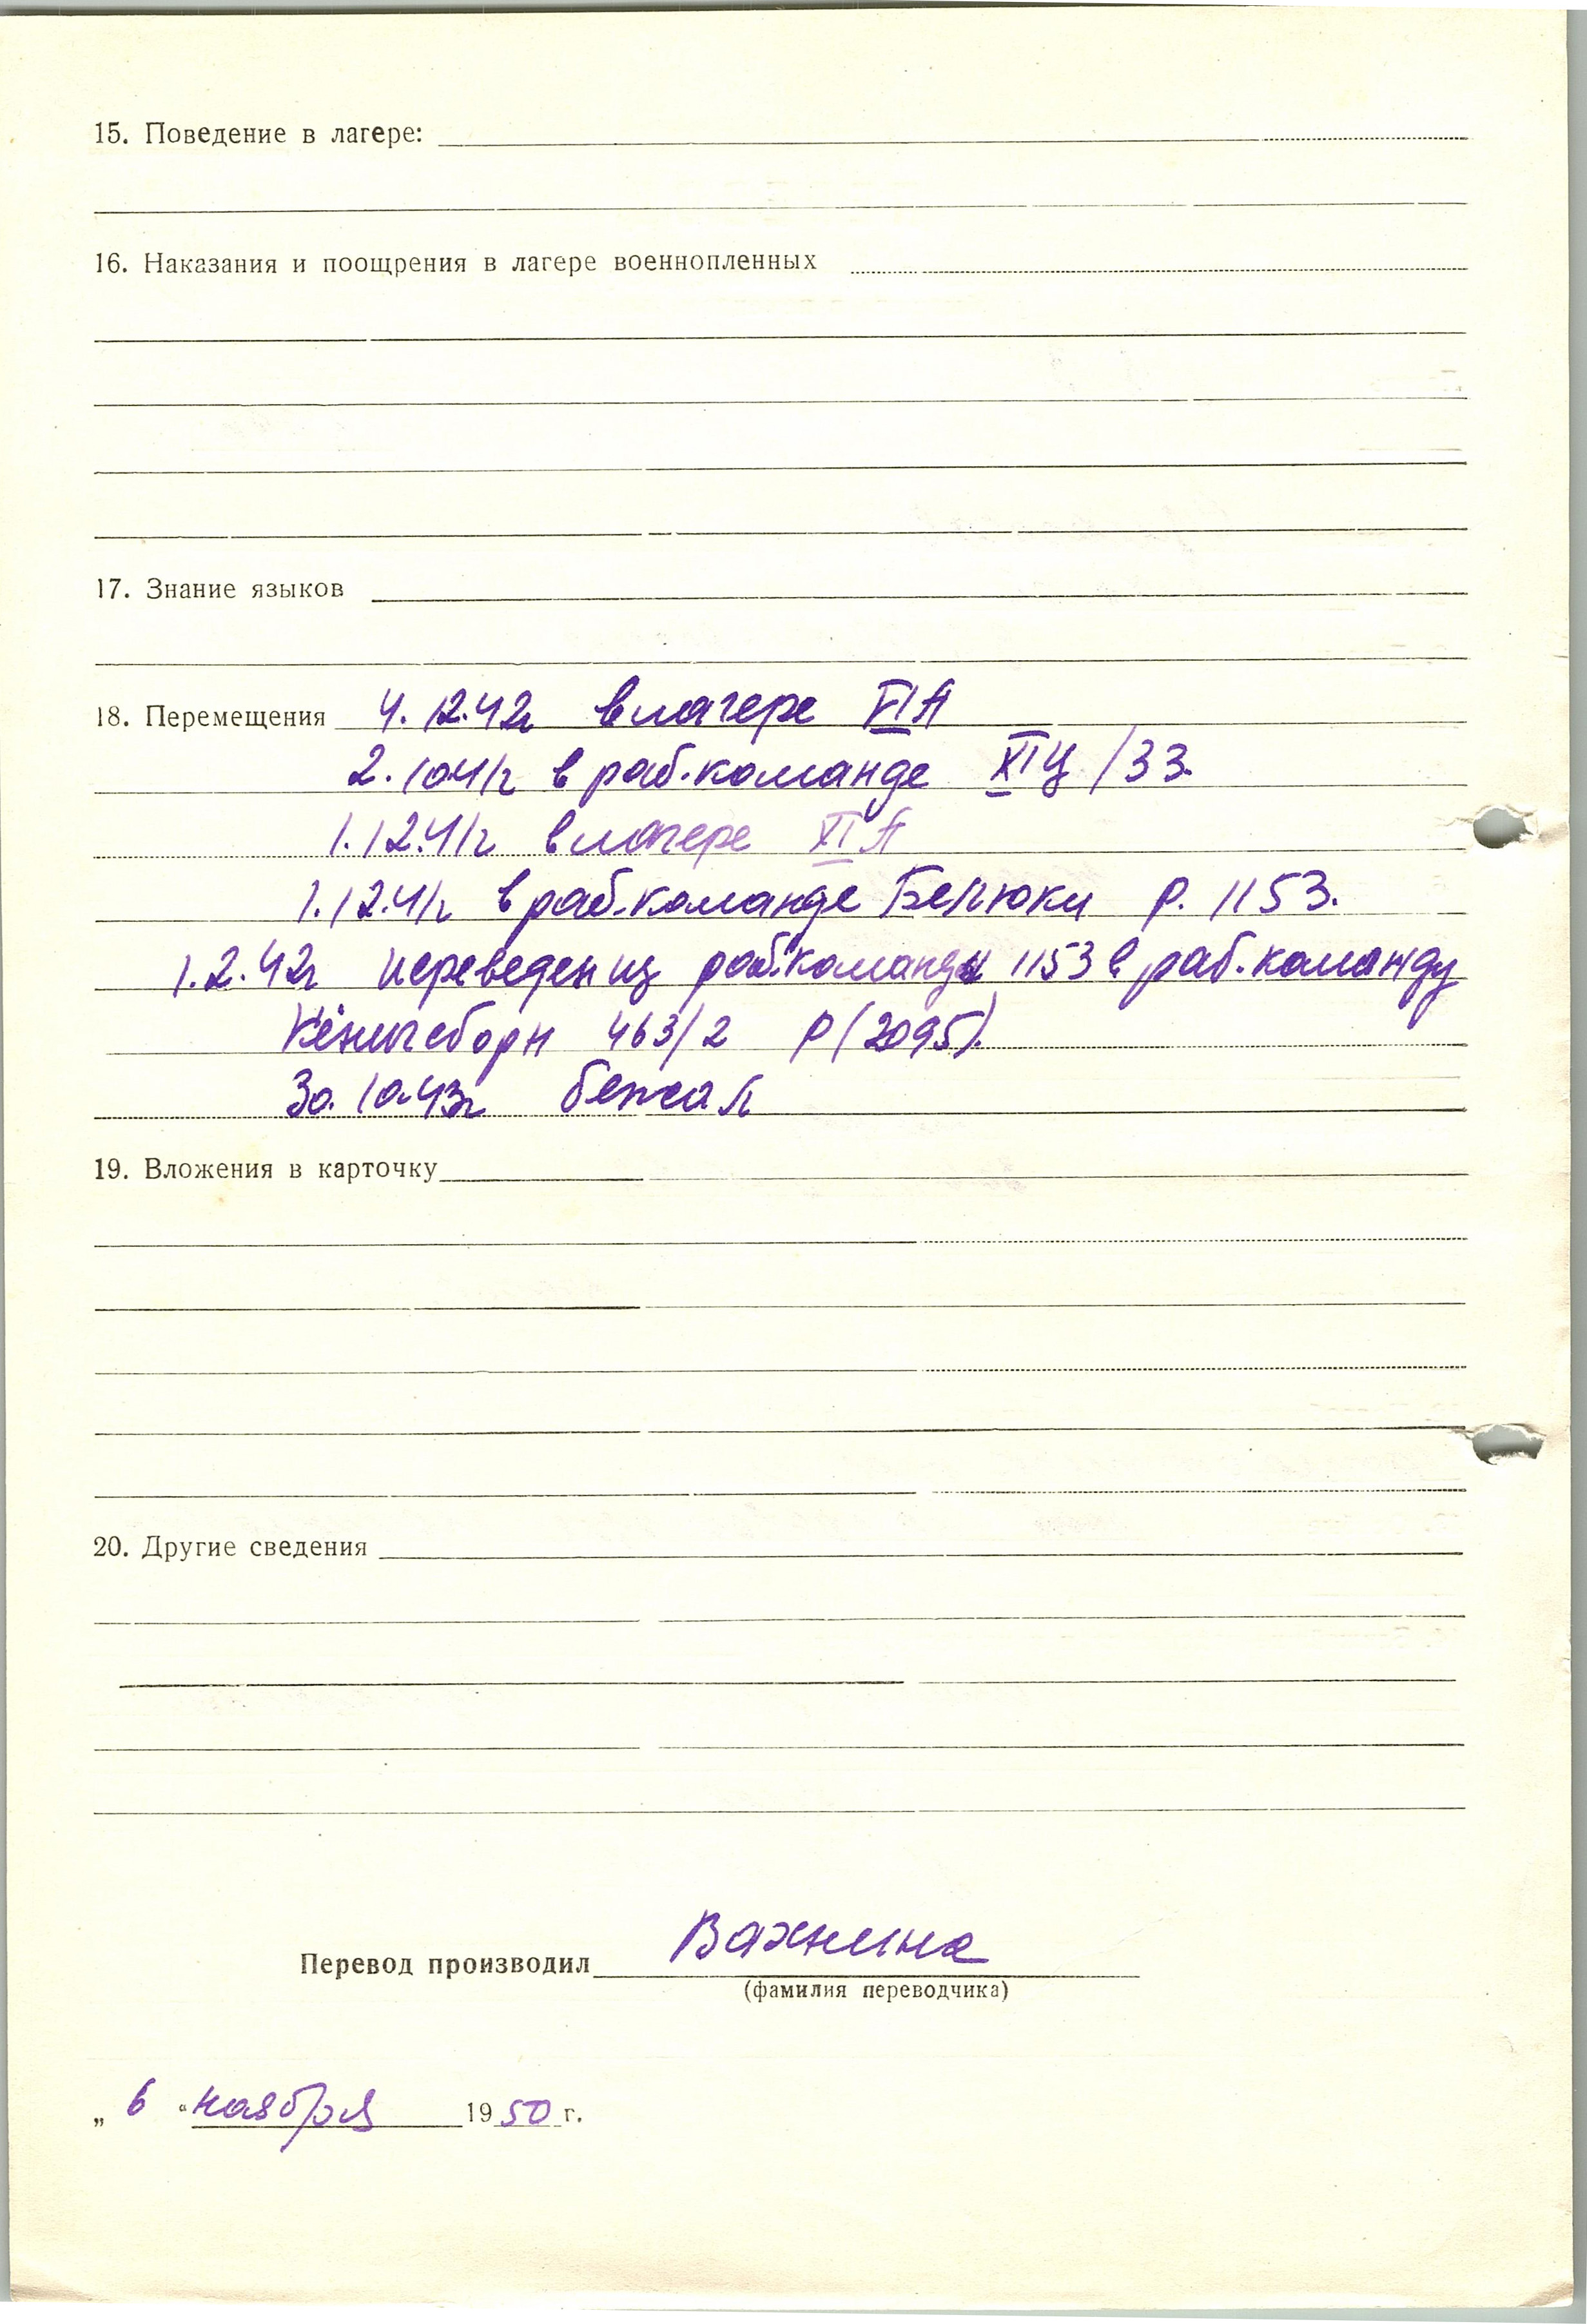 15. Поведение в лагере:
16. Наказания и поощрения в лагере военнопленных
17. Знание языков
18. Перемещения 4.12.42г в лагере VI А
2.10.41г в раб.команде XI Ц /33.
1.12.41г в лагере XI А
1.12.41г в раб.команде Белюки р. 1153.
1.2.42г переведен из раб.команды 1153 в раб.команду
Кёнигсборн 463/2 р (2095).
30.10.43г бежал
19. Вложения в карточку
20. Другие сведения
Перевод производил Важнина
(фамилия переводчика)
„ 6 “ ноября 1950 г.